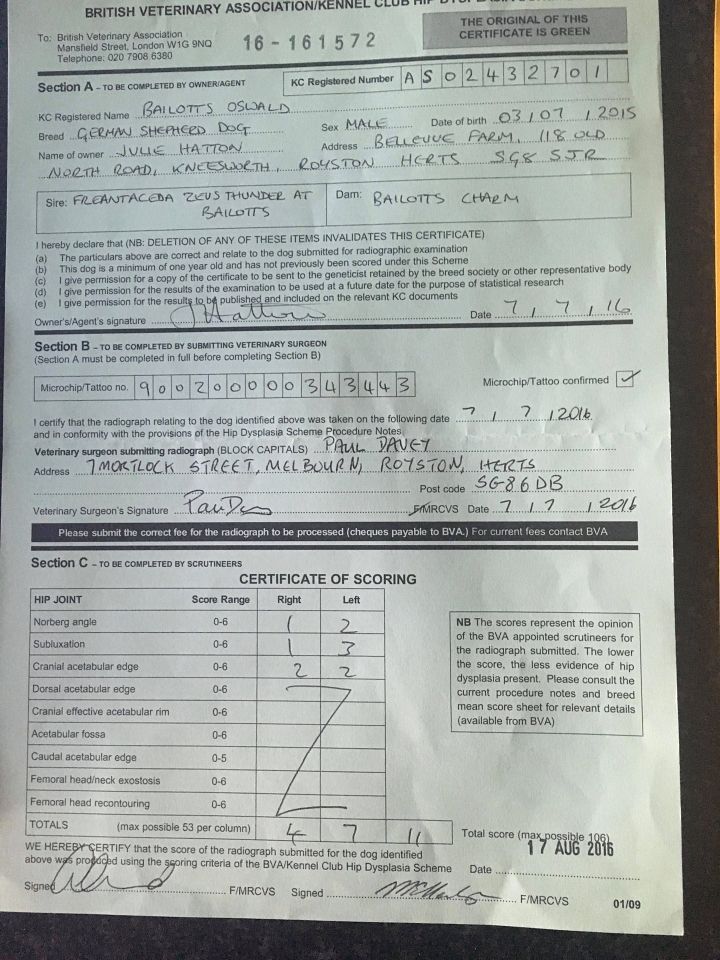 BRITISH VETERINARY ASSOCIATION/KENNEL CLUB HIP
THE ORIGINAL OF THIS
CERTIFICATE IS GREEN
To: British Veterinary Association
Mansfield Street, London W1G 9NQ
Telephone: 020 7908 6380
16-161572
Section A – TO BE COMPLETED BY OWNER/AGENT
KC Registered Number A S 0 2 4 3 2 7 0 1
KC Registered Name BAILOTTS OSWALD
Breed GERMAN SHEPHERD DOG Sex MALE Date of birth 03/07/2015
Name of owner JULIE HATTON Address BELLEVUE FARM, 118 OLD
NORTH ROAD, KNEESWORTH, ROYSTON HERTS SG8 5JR
Sire: FREANTACEDA ZEUS THUNDER AT
BAILOTTS
Dam: BAILOTTS CHARM
I hereby declare that (NB: DELETION OF ANY OF THESE ITEMS INVALIDATES THIS CERTIFICATE)
(a) The particulars above are correct and relate to the dog submitted for radiographic examination
(b) This dog is a minimum of one year old and has not previously been scored under this Scheme
(c) I give permission for a copy of the certificate to be sent to the geneticist retained by the breed society or other representative body
(d) I give permission for the results of the examination to be used at a future date for the purpose of statistical research
(e) I give permission for the results to be published and included on the relevant KC documents
Owner's/Agent's signature JHatton Date 7/7/16
Section B – TO BE COMPLETED BY SUBMITTING VETERINARY SURGEON
(Section A must be completed in full before completing Section B)
Microchip/Tattoo no. 9 0 0 2 0 0 0 0 0 3 4 3 4 4 3 Microchip/Tattoo confirmed ✓
I certify that the radiograph relating to the dog identified above was taken on the following date 7/7/2016
and in conformity with the provisions of the Hip Dysplasia Scheme Procedure Notes
Veterinary surgeon submitting radiograph (BLOCK CAPITALS) PAUL DAVEY
Address 7 MORTLOCK STREET, MELBOURN, ROYSTON, HERTS
Post code SG8 6DB
Veterinary Surgeon's Signature F/MRCVS Date 7/7/2016
Please submit the correct fee for the radiograph to be processed (cheques payable to BVA.) For current fees contact BVA
Section C – TO BE COMPLETED BY SCRUTINEERS
CERTIFICATE OF SCORING
HIP JOINT Score Range Right Left
Norberg angle 0-6 1 2
Subluxation 0-6 1 3
Cranial acetabular edge 0-6 2 2
Dorsal acetabular edge 0-6
Cranial effective acetabular rim 0-6
Acetabular fossa 0-6
Caudal acetabular edge 0-5
Femoral head/neck exostosis 0-6
Femoral head recontouring 0-6
TOTALS (max possible 53 per column) 4 7 11 Total score (max possible 106)
NB The scores represent the opinion
of the BVA appointed scrutineers for
the radiograph submitted. The lower
the score, the less evidence of hip
dysplasia present. Please consult the
current procedure notes and breed
mean score sheet for relevant details
(available from BVA)
WE HEREBY CERTIFY that the score of the radiograph submitted for the dog identified
above was produced using the scoring criteria of the BVA/Kennel Club Hip Dysplasia Scheme Date 17 AUG 2016
Signed F/MRCVS Signed F/MRCVS
01/09